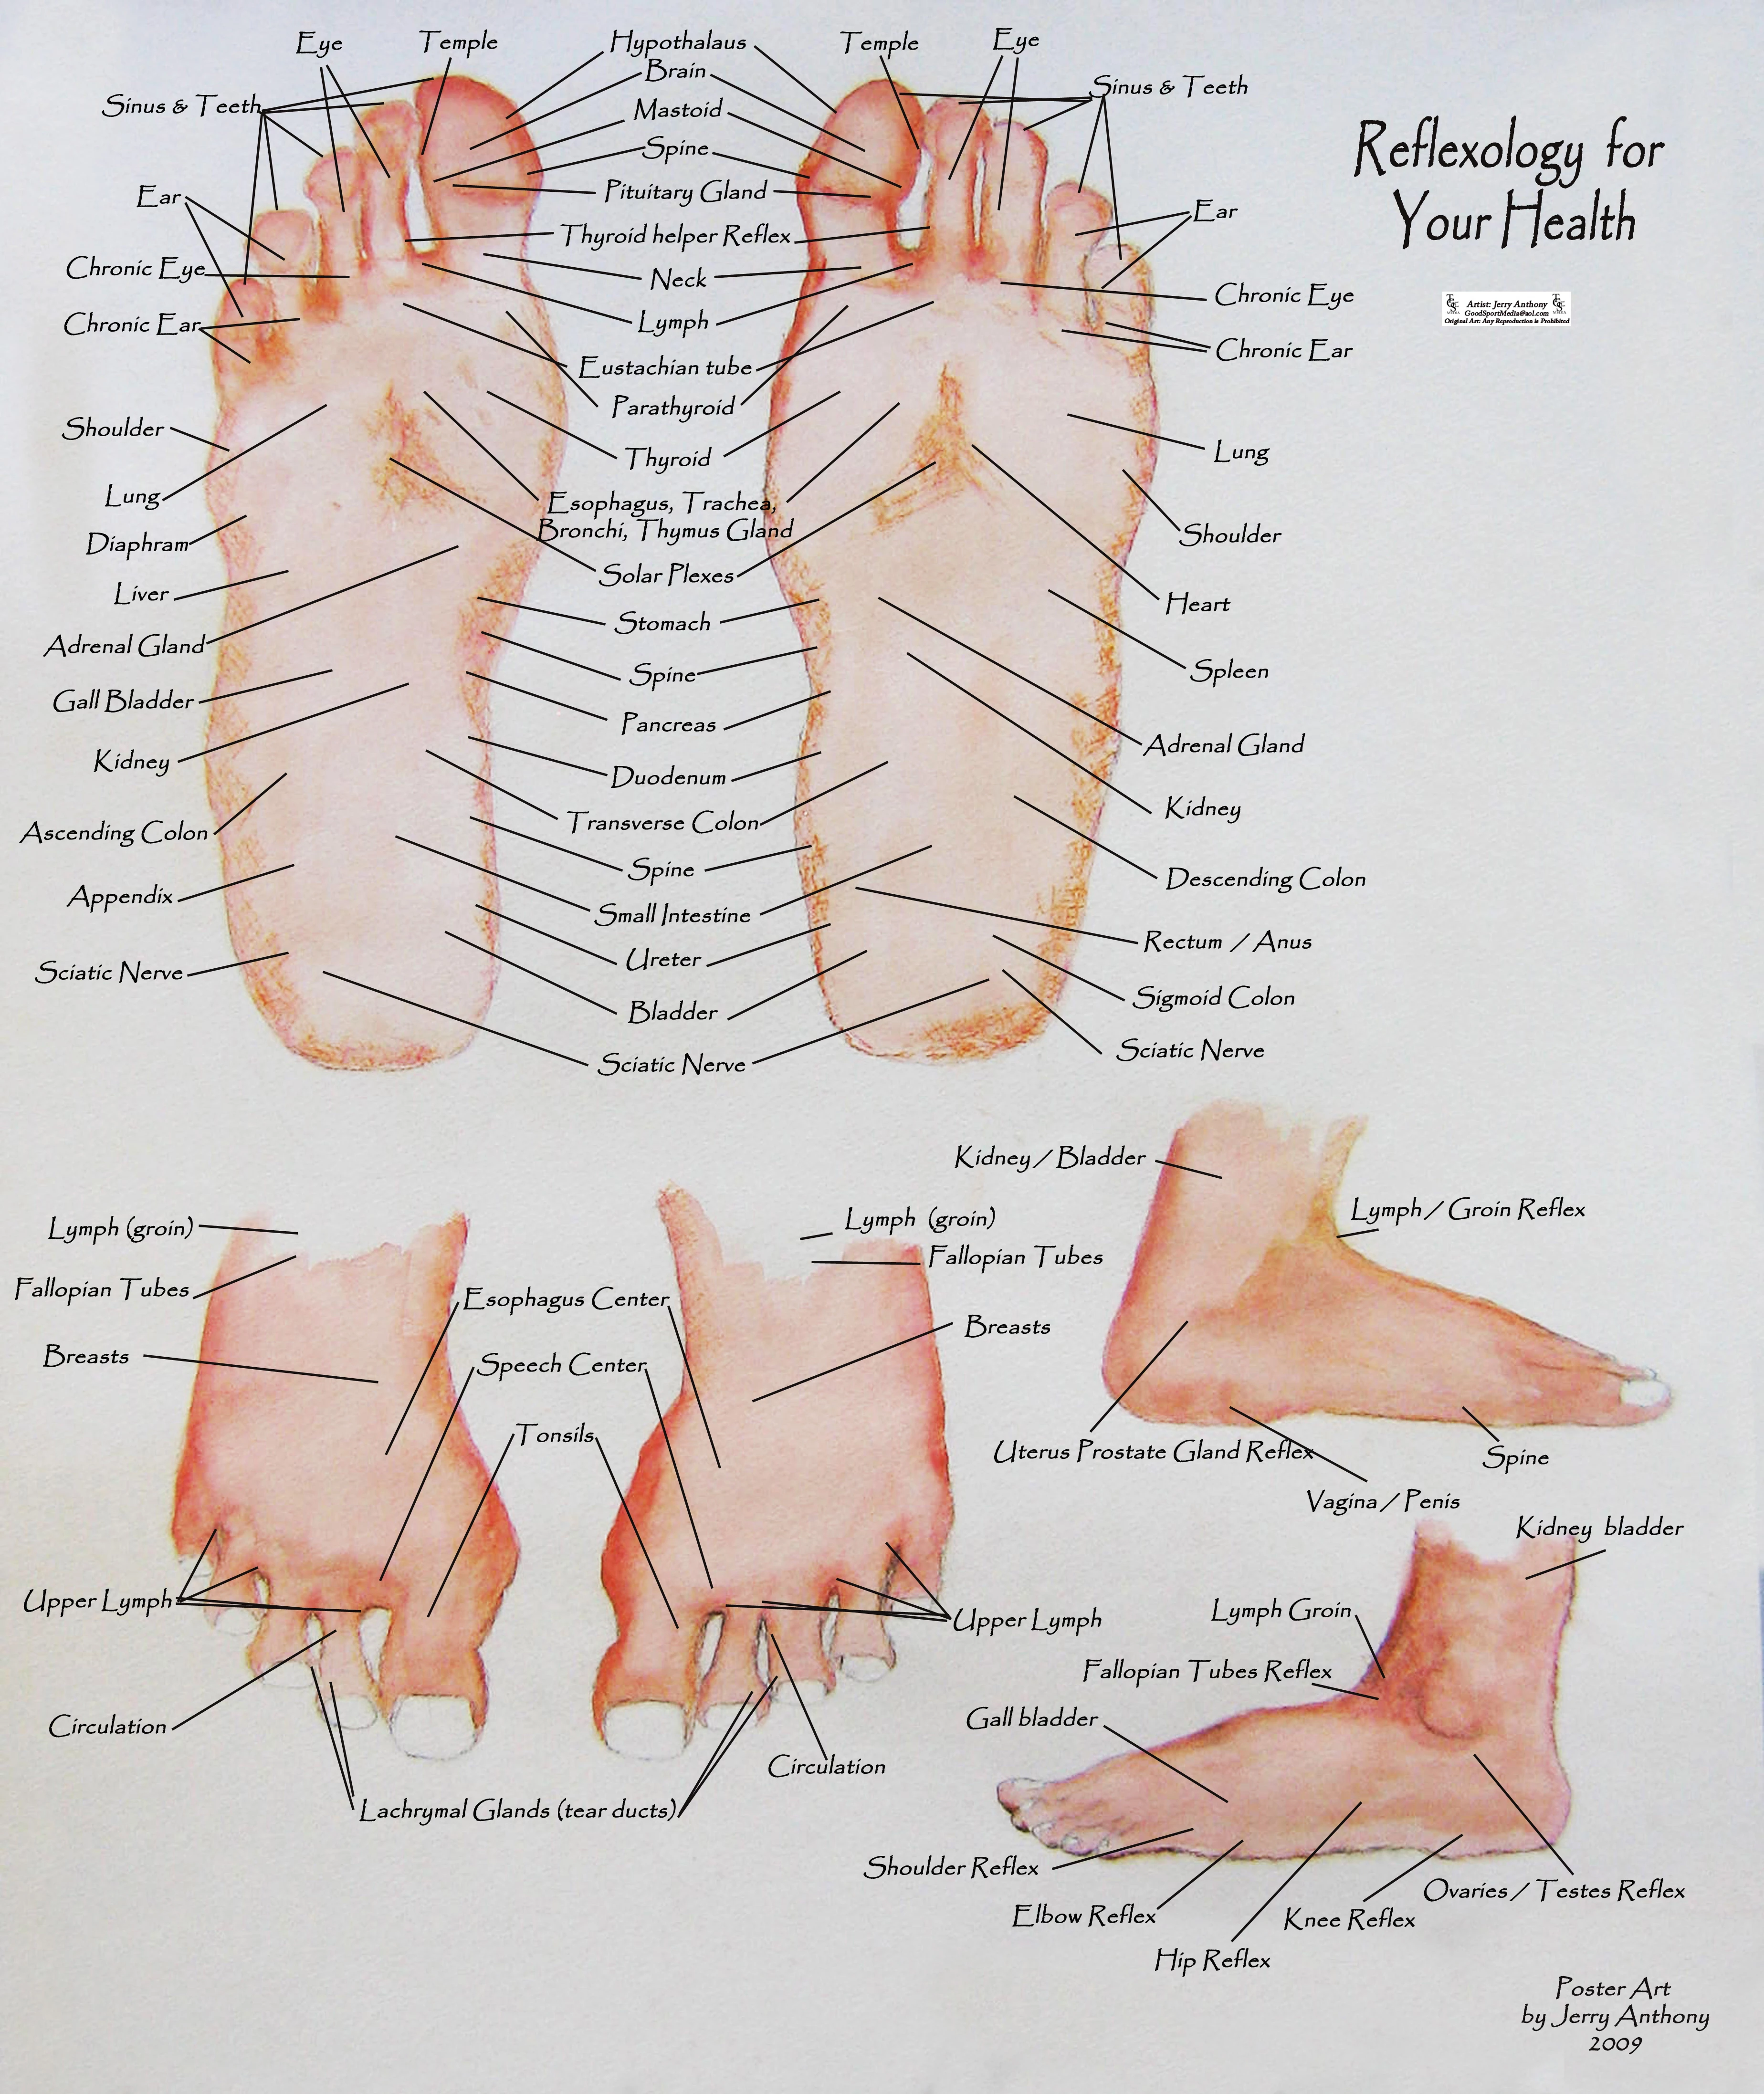 Reflexology for
Your Health
Artist: Jerry Anthony
GoodSportMedia@aol.com
Original Art: Any Reproduction is Prohibited
Eye
Temple
Hypothalaus
Temple
Eye
Brain
Sinus & Teeth
Mastoid
Sinus & Teeth
Spine
Ear
Pituitary Gland
Ear
Thyroid helper Reflex
Chronic Eye
Neck
Chronic Eye
Chronic Ear
Lymph
Chronic Ear
Eustachian tube
Parathyroid
Shoulder
Thyroid
Lung
Lung
Esophagus, Trachea,
Bronchi, Thymus Gland
Shoulder
Diaphram
Solar Plexes
Liver
Heart
Stomach
Adrenal Gland
Spine
Spleen
Gall Bladder
Pancreas
Adrenal Gland
Kidney
Duodenum
Kidney
Transverse Colon
Ascending Colon
Spine
Descending Colon
Appendix
Small Intestine
Rectum / Anus
Ureter
Sciatic Nerve
Sigmoid Colon
Bladder
Sciatic Nerve
Sciatic Nerve
Kidney / Bladder
Lymph / Groin Reflex
Lymph (groin)
Lymph (groin)
Fallopian Tubes
Fallopian Tubes
Esophagus Center
Breasts
Breasts
Speech Center
Tonsils
Uterus Prostate Gland Reflex
Spine
Vagina / Penis
Kidney bladder
Upper Lymph
Upper Lymph
Lymph Groin
Fallopian Tubes Reflex
Gall bladder
Circulation
Circulation
Lachrymal Glands (tear ducts)
Shoulder Reflex
Ovaries / Testes Reflex
Elbow Reflex
Knee Reflex
Hip Reflex
Poster Art
by Jerry Anthony
2009